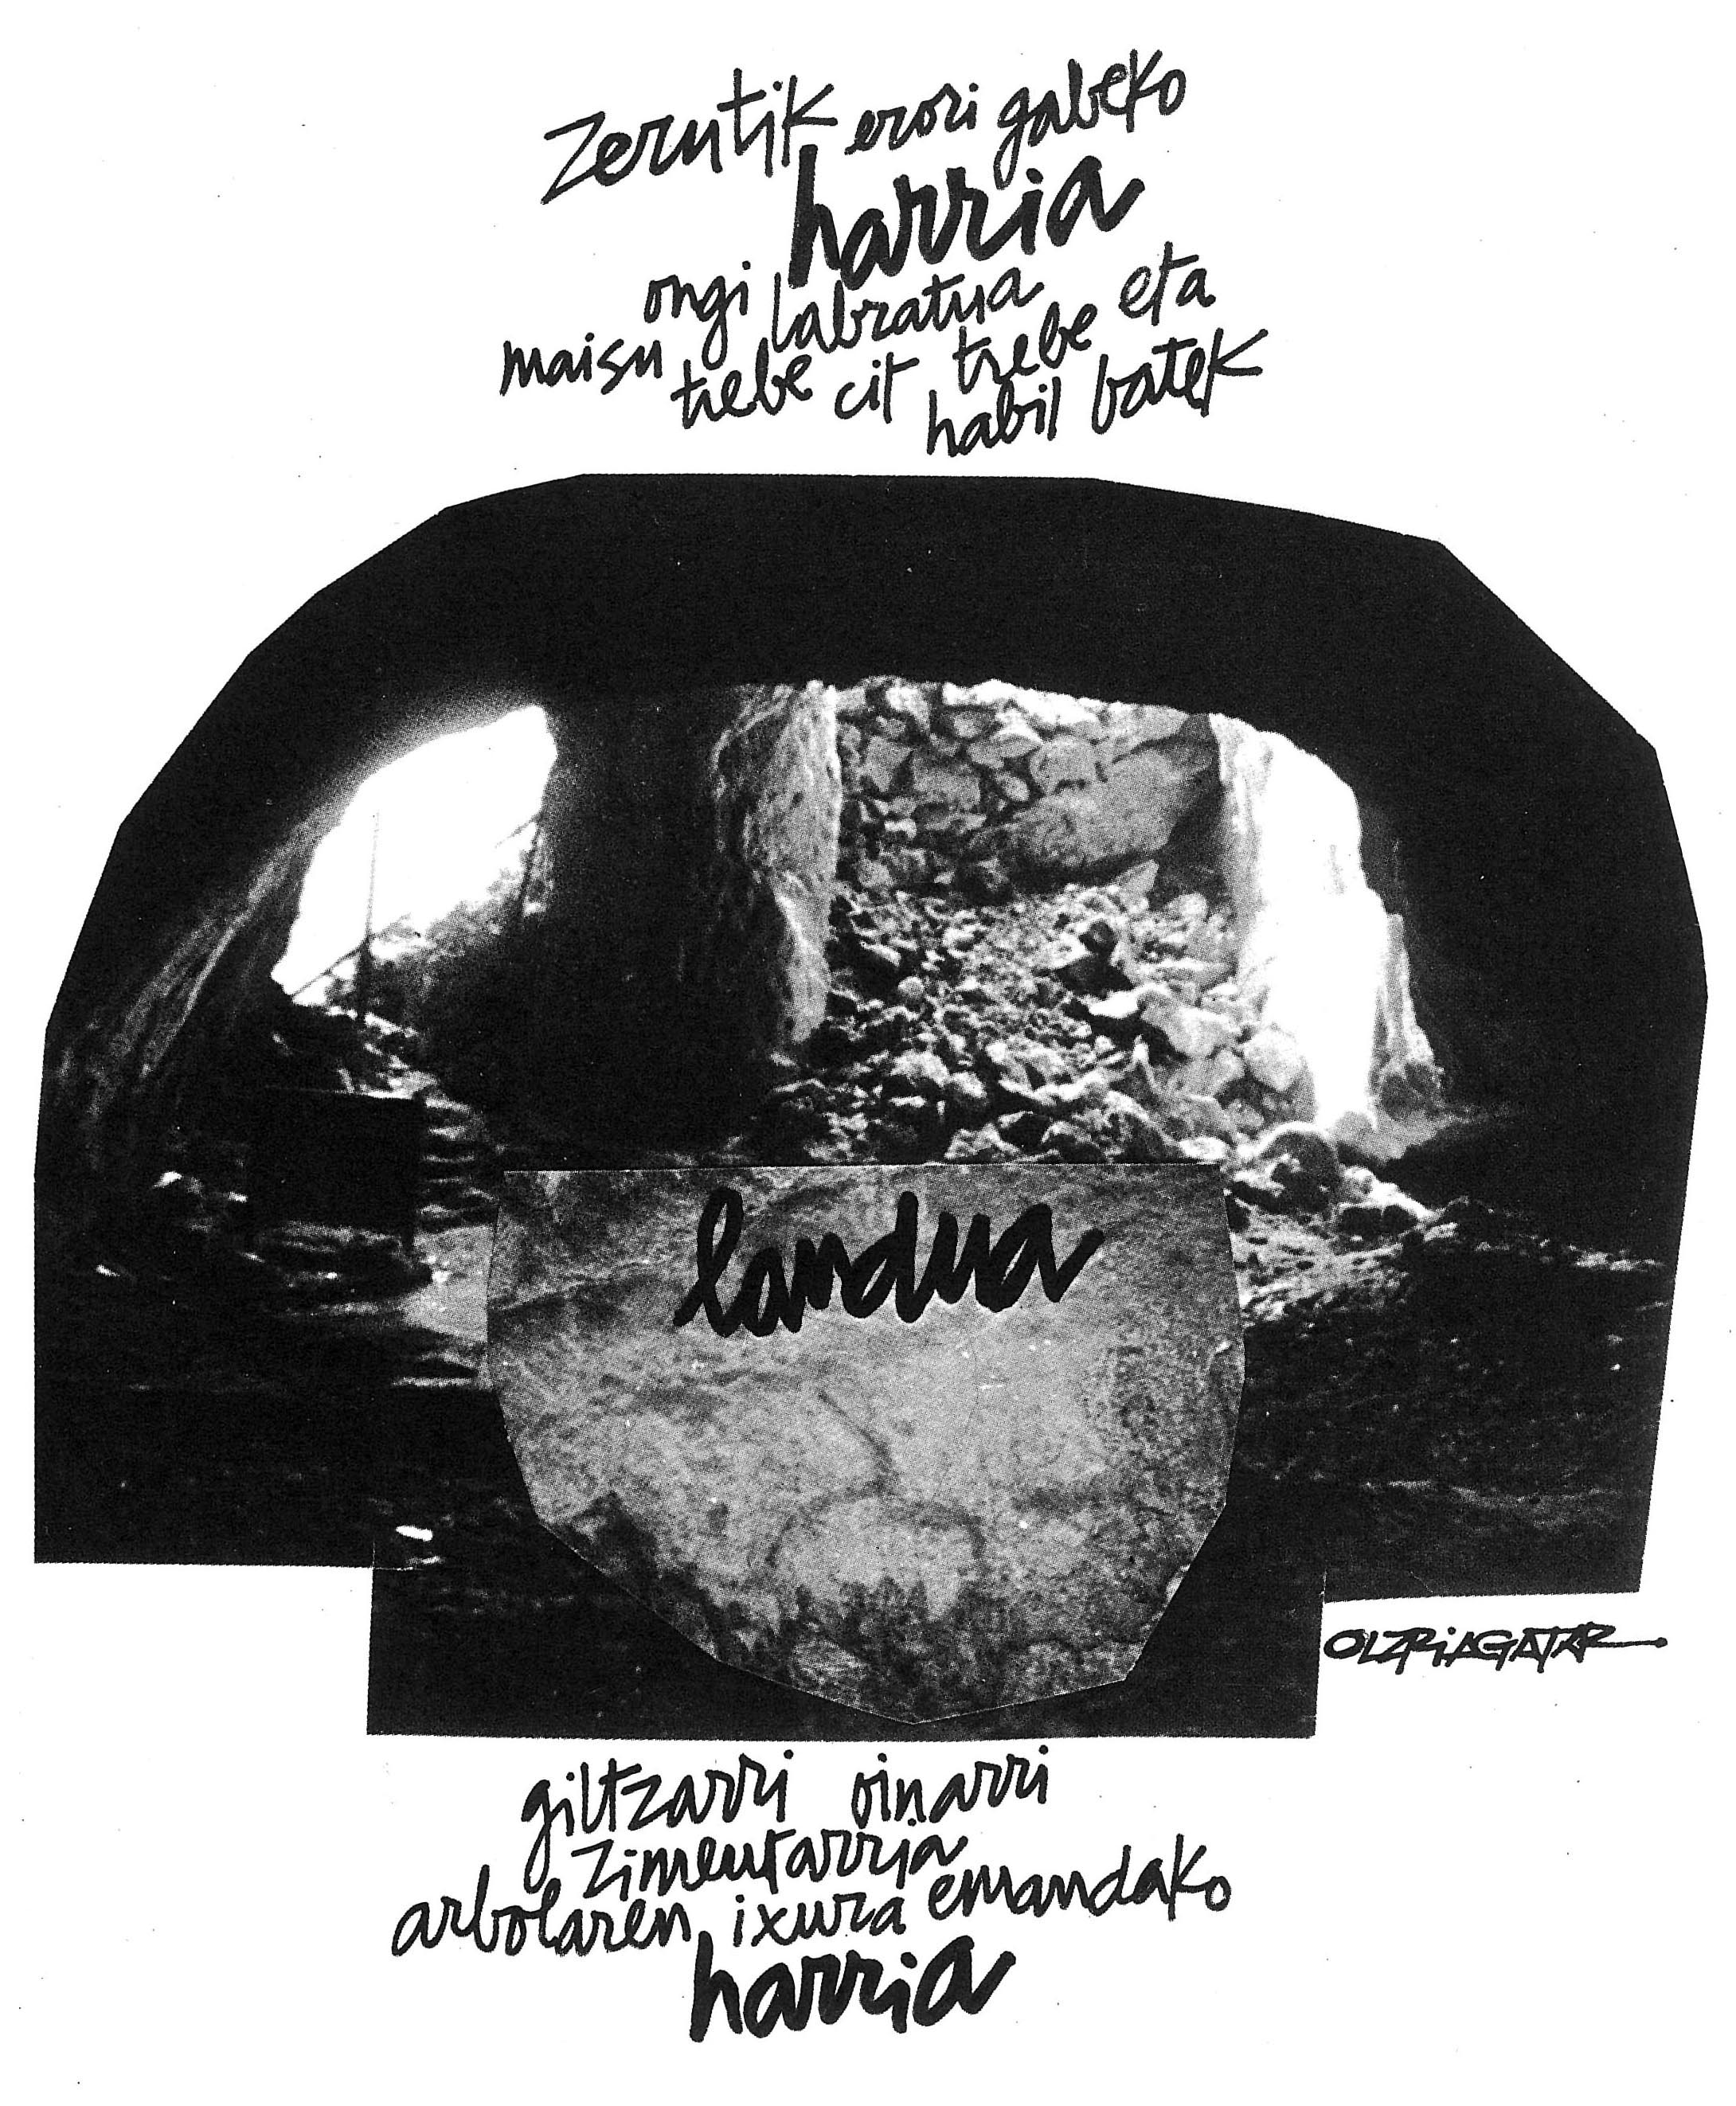 zerutik erori gabeko
harria
ongi labratua
maisu trebe eta
trebe cit habil batek
landua
OLZRIAGATAR
giltzarri oinarri
zimentarria
arbolaren ixura emandako
harria